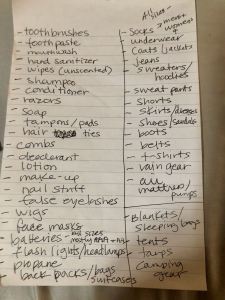 - toothbrushes
- toothpaste
- mouthwash
- hand sanitizer
- wipes (unscented)
- shampoo
- conditioner
- razors
- soap
- tampons/pads
- hair ties
- combs
- deodorant
- lotion
- make-up
- nail stuff
- false eyelashes
- wigs
- face masks
- batteries - all sizes
mostly AAA +
- flash lights/headlamps
- propane
- back packs/bags
suitcases
All sizes
- Socks > mens +
womens +
- underwear
- Coats/jackets
- jeans
- sweaters/
hoodies
- sweat pants
- shorts
- skirts/dresses
- shoes/sandals
- boots
- belts
- t-shirts
- rain gear
- air
mattress/
pumps
- Blankets/
sleeping bags
- tents
- tarps
- Camping
gear